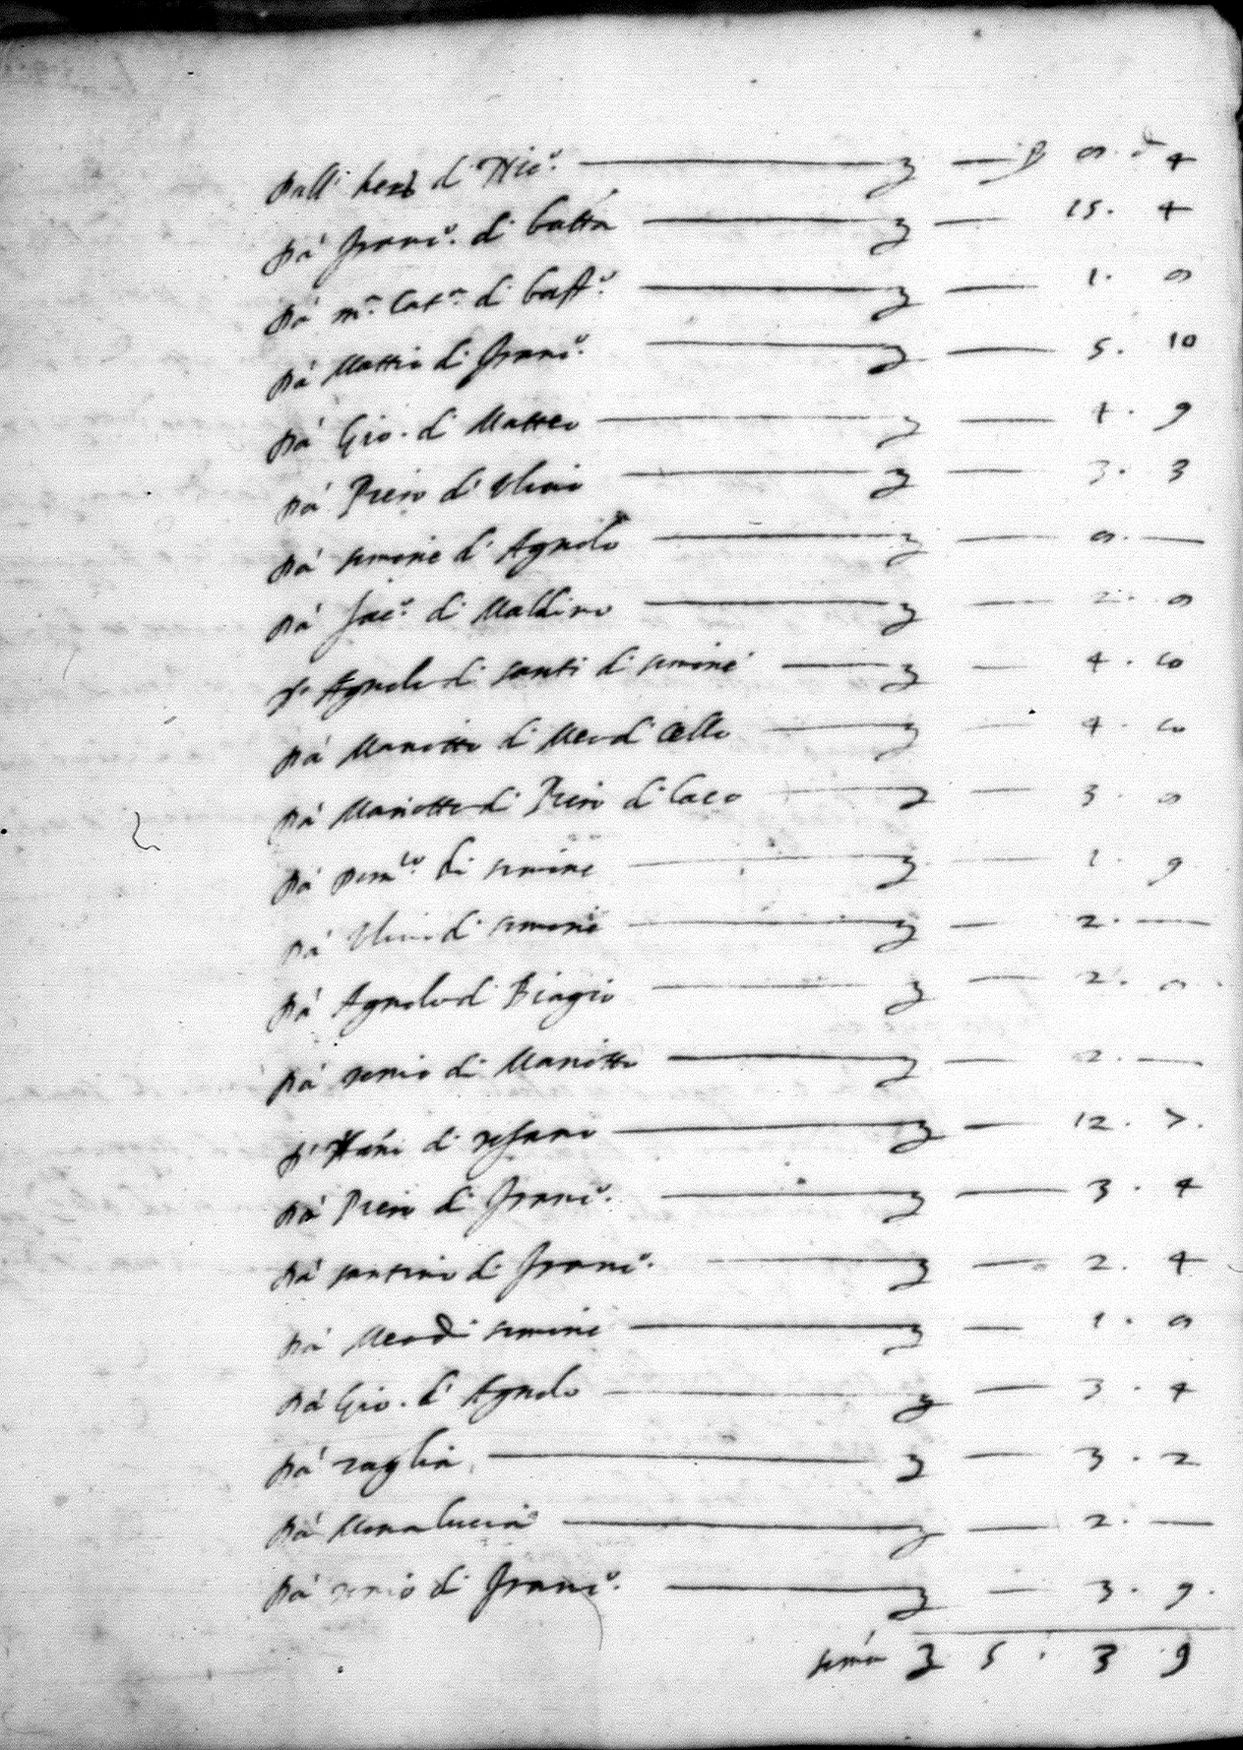 Dalli heredi di Nico. ——— ʒ — ß 8. d 4
Da Franco. di batta ——— ʒ — 15. 4
Da ma. Cata. di basto. ——— ʒ — 1. 8
Da Mattio di Franco. ——— ʒ — 5. 10
Da Gio. di Matteo ——— ʒ — 4. 9
Da Piero di ——— ʒ — 3. 3
Da simone di Agnolo ——— ʒ — 8. —
Da Jaco. di ——— ʒ — 2. 8
Da Agnolo di santi di simone ——— ʒ — 4. 10
Da Mariotto di Meo di Cello ——— ʒ — 4. 10
Da Mariotto di Piero di Caco ——— ʒ — 3. 8
Da Domco. di simone ——— ʒ — 1. 9
Da di simone ——— ʒ — 2. —
Da Agnolo di Biagio ——— ʒ — 2. 8
Da di Mariotto ——— ʒ — 2. —
Da di ——— ʒ — 12. 7.
Da Piero di Franco. ——— ʒ — 3. 4
Da santino di Franco. ——— ʒ — 2. 4
Da Meo di simone ——— ʒ — 1. 8
Da Gio. di Agnolo ——— ʒ — 3. 4
Da ——— ʒ — 3. 2
Da Mona lucia ——— ʒ — 2. —
Da di Franco. ——— ʒ — 3. 9.
soma ʒ 5. 3 9